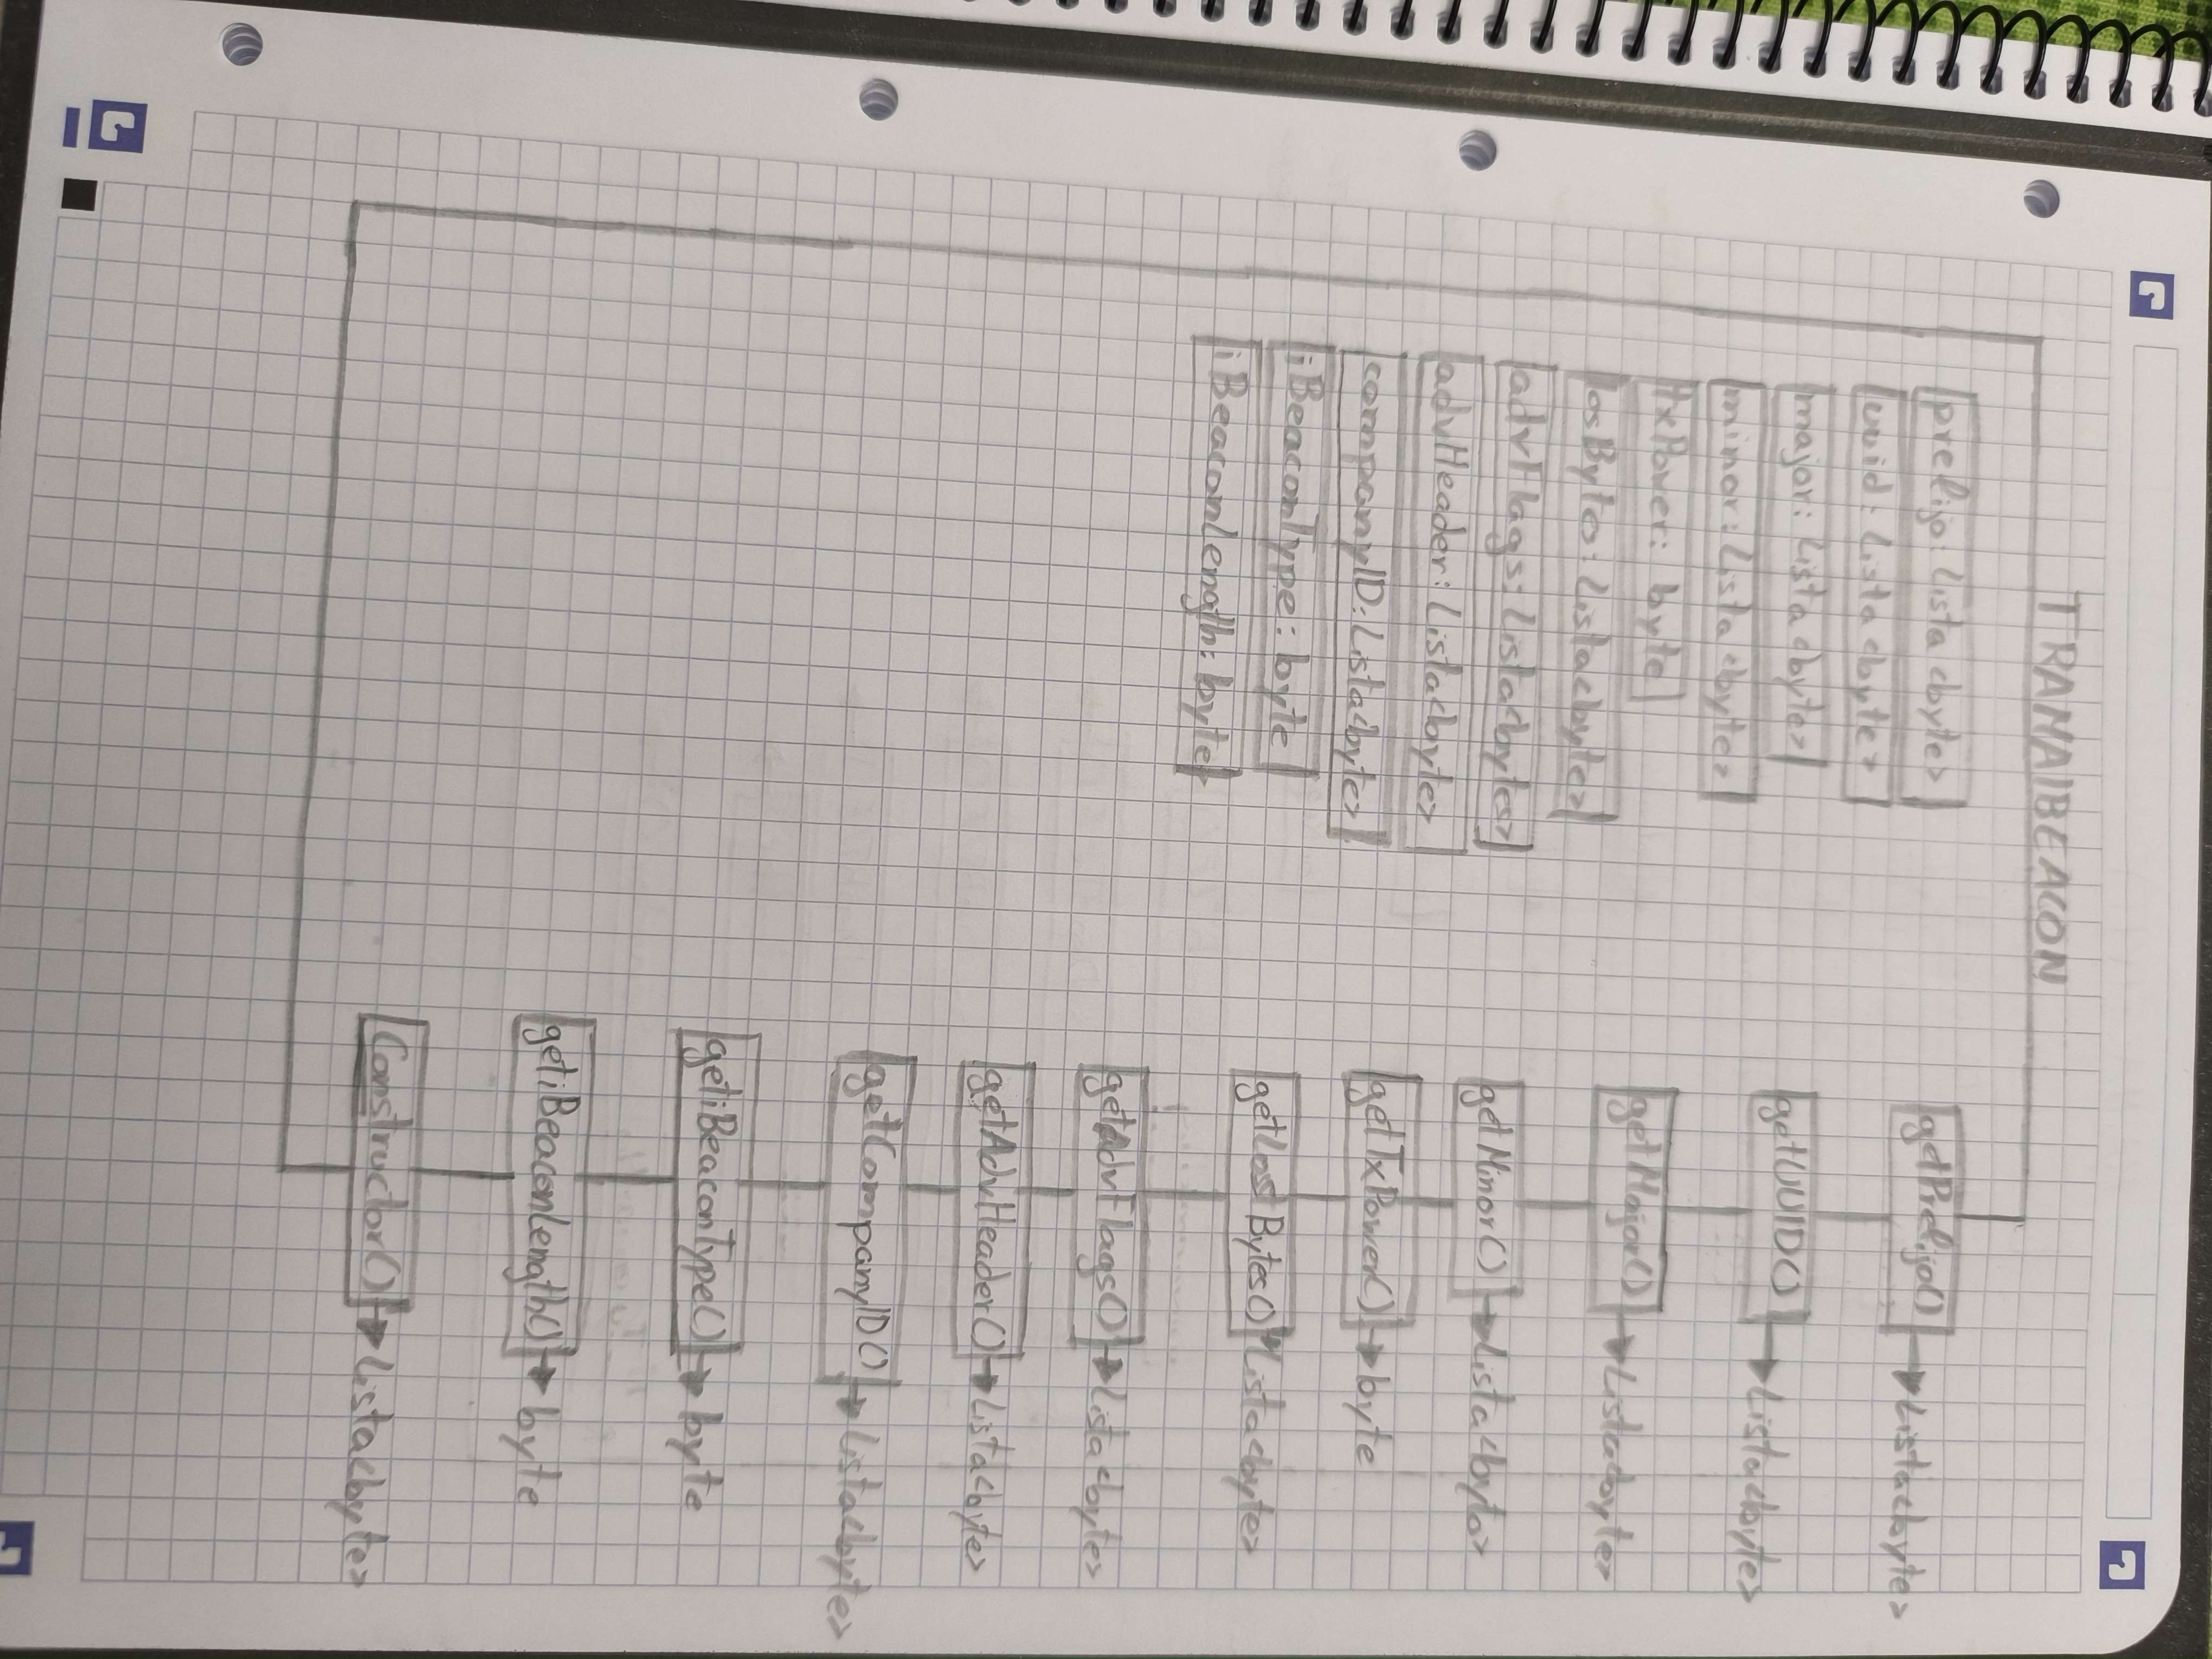 TRAMAIBEACON
prefijo: Lista <byte>
uuid: Lista <byte>
major: Lista <byte>
minor: Lista <byte>
txPower: byte
losBytes: Lista<byte>
advFlags: Lista<bytes>
advHeader: Lista<byte>
companyID: Lista<byte>
iBeaconType: byte
iBeaconLength: byte
getPrefijo() Lista<byte>
getUUID() Lista<byte>
getMajor() Lista<byte>
getMinor() Lista<byte>
getTxPower() byte
getLosBytes() Lista<byte>
getAdvFlags() Lista<byte>
getAdvHeader() Lista<byte>
getCompanyID() Lista<byte>
getiBeaconType() byte
getiBeaconLength() byte
Constructor() Lista<byte>